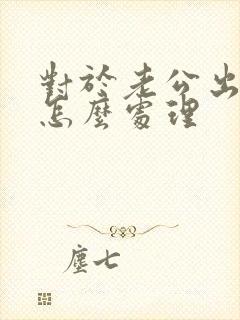 對於老公出
怎麼處理
塵七